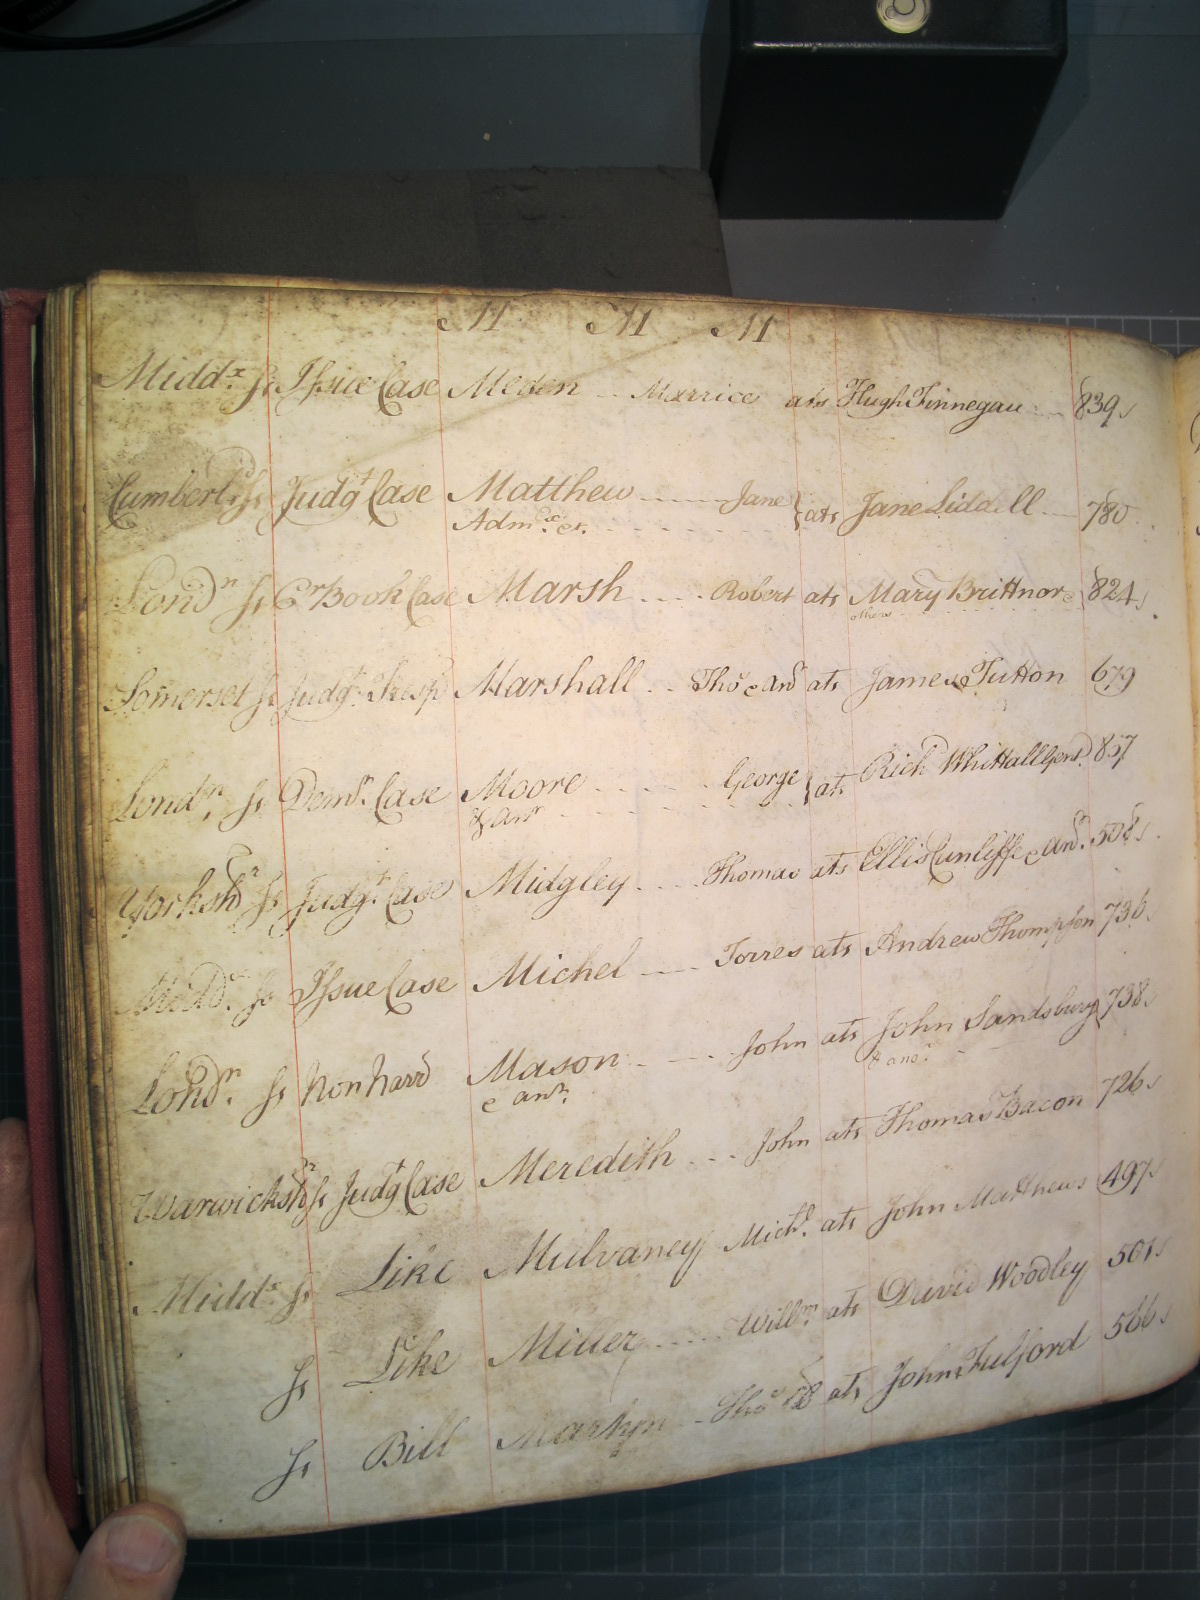 M M M
Midd.x ss Issue Case Meden Marrice ats Hugh Finnegan 839
Cumberld ss Judgt Case Matthew Jane ats Jane Liddell 780
Adm.x &c.
Lond.n ss Cr Book Case Marsh Robert ats Mary Brittnor 824
others
Somerset ss Judgt. Tresp Marshall Thos & anr ats James Tutton 679
Lond.n ss Demr. Case Moore George ats Richd Whittall Gent. 857
& anr
Yorkshr ss Judgt. Case Midgley Thomas ats Ellis Cunliffe & anr. 508
Midd.x ss Issue Case Michel Torres ats Andrew Thompson 736
Lond.n ss Non Narr Mason John ats John Sandsbury 738
& anr. & anor
Warwickshr ss Judgt Case Meredith John ats Thomas Bacon 726
Midd.x ss Like Mulvaney Michl. ats John Matthews 497
ss Like Miller Willm ats David Woodley 501
ss Bill Martyn Thos ats John Fulford 566